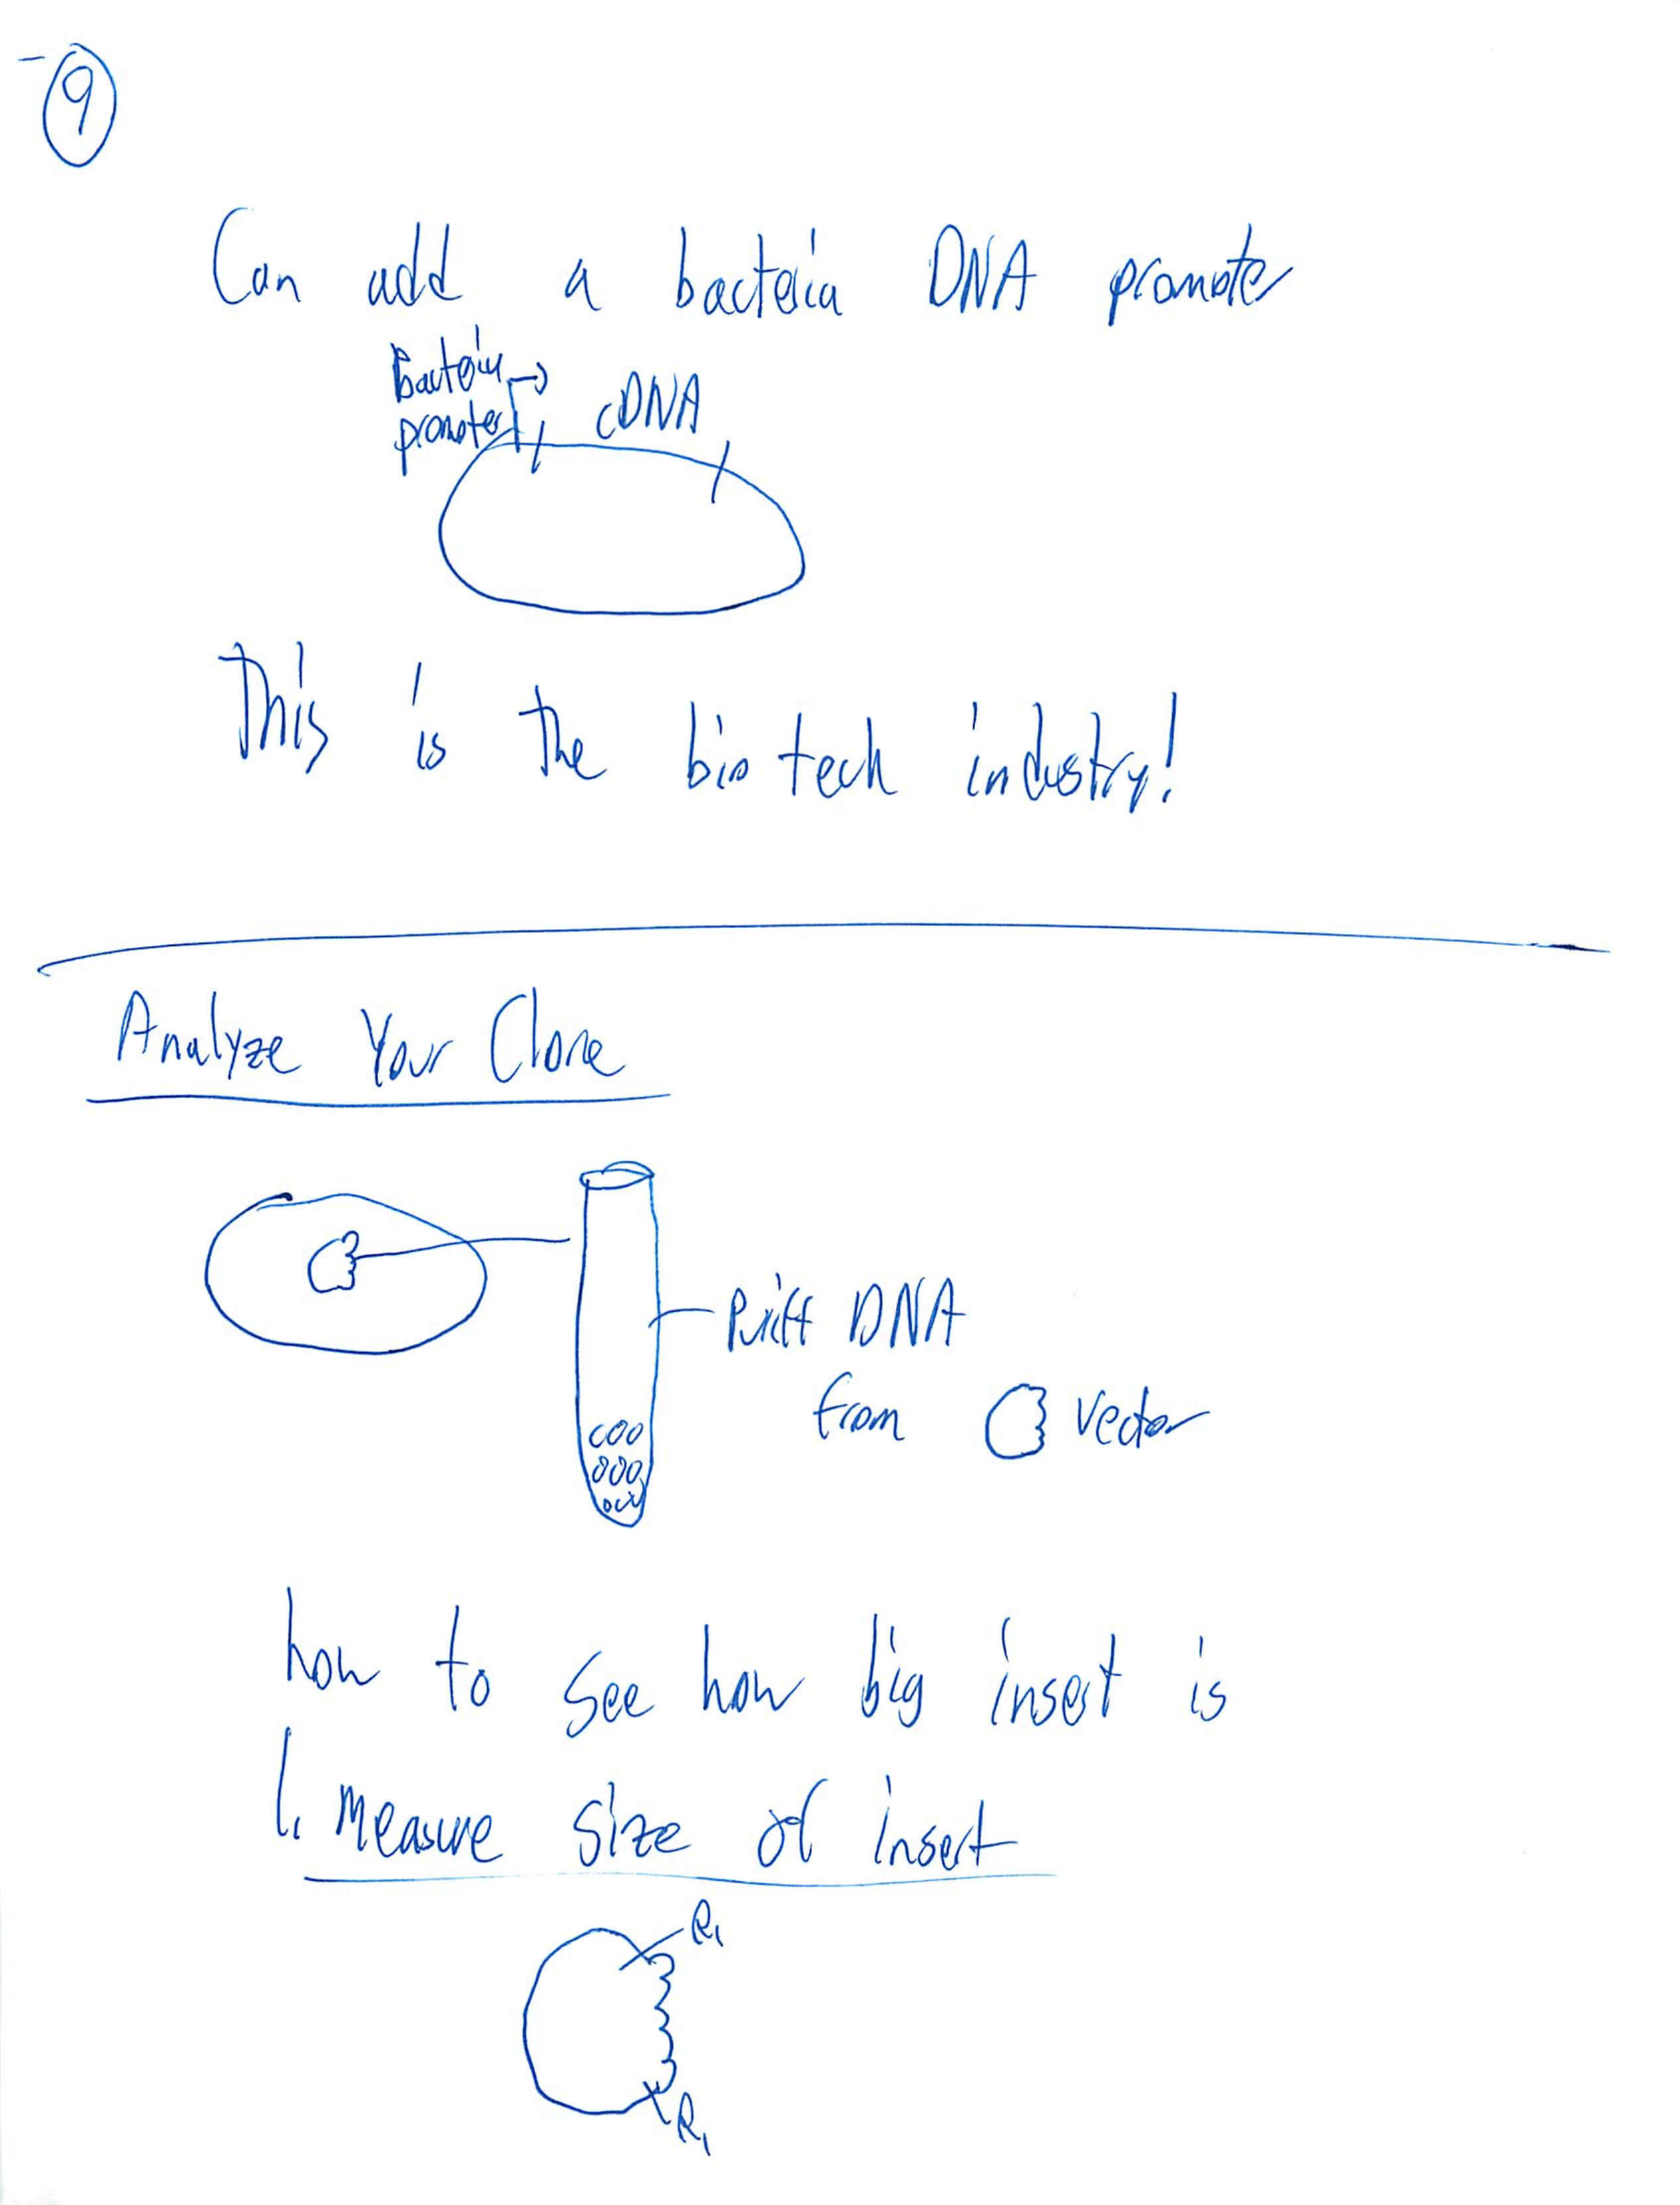 9
Can add a bacteria DNA promoter
Bacteria
promoter
cDNA
This is the biotech industry!
Analyze Your Clone
Puriff DNA
from vector
how to see how big insert is
1. Measure size of insert
R1
R1